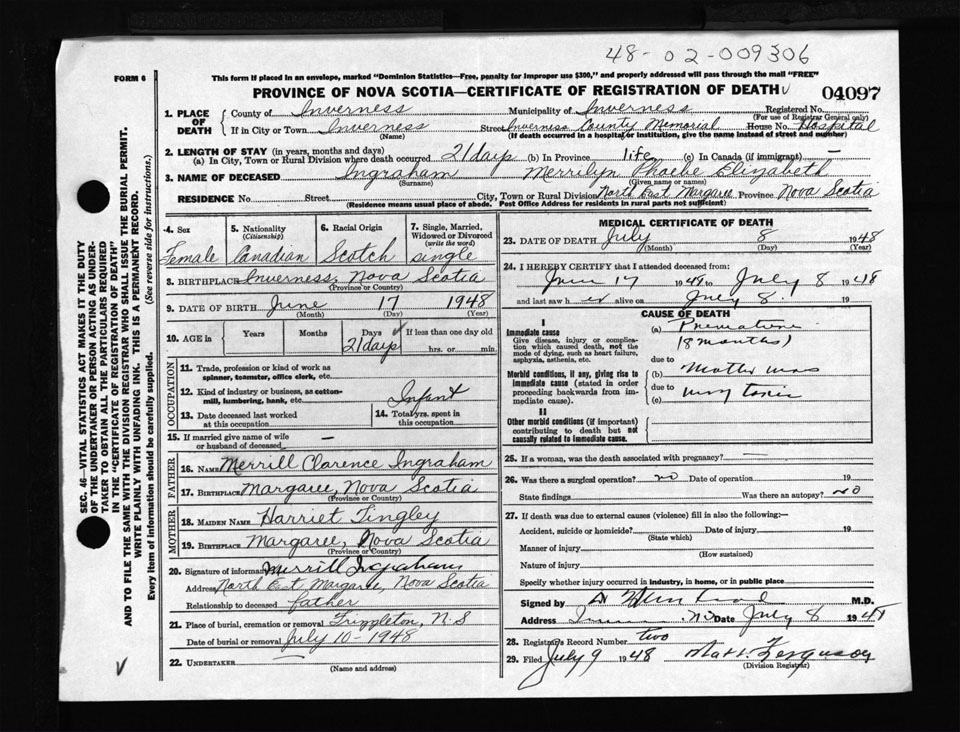 48-02-009306
FORM 6
This form if placed in an envelope, marked "Dominion Statistics—Free, penalty for improper use $300," and properly addressed will pass through the mail "FREE"
PROVINCE OF NOVA SCOTIA—CERTIFICATE OF REGISTRATION OF DEATH
04097
SEC. 46—VITAL STATISTICS ACT MAKES IT THE DUTY
OF THE UNDERTAKER OR PERSON ACTING AS UNDER-
TAKER TO OBTAIN ALL THE PARTICULARS REQUIRED
IN THE "CERTIFICATE OF REGISTRATION OF DEATH"
AND TO FILE THE SAME WITH THE DIVISION REGISTRAR WHO SHALL ISSUE THE BURIAL PERMIT.
WRITE PLAINLY WITH UNFADING INK. THIS IS A PERMANENT RECORD.
Every item of information should be carefully supplied. (See reverse side for instructions.)
1. PLACE OF DEATH
County of Inverness Municipality of Inverness Registered No.
(For use of Registrar General only)
If in City or Town Inverness Street Inverness County Memorial House No. Hospital
(Name) (If death occurred in a hospital or institution, give the name instead of street and number)
2. LENGTH OF STAY (in years, months and days)
(a) In City, Town or Rural Division where death occurred 21 days (b) In Province life (c) In Canada (if immigrant) —
3. NAME OF DECEASED Ingraham Merrilyn Phoebe Elizabeth
(Surname) (Given name or names)
RESIDENCE No. Street City, Town or Rural Division North East Margaree Province Nova Scotia
(Residence means usual place of abode. Post Office Address for residents in rural parts not sufficient)
4. Sex
Female
5. Nationality
(Citizenship)
Canadian
6. Racial Origin
Scotch
7. Single, Married,
Widowed or Divorced
(write the word)
single
8. BIRTHPLACE Inverness, Nova Scotia
(Province or Country)
9. DATE OF BIRTH June 17 1948
(Month) (Day) (Year)
10. AGE in Years Months Days If less than one day old
21 days hrs. or min.
OCCUPATION
11. Trade, profession or kind of work as
spinner, teamster, office clerk, etc.
12. Kind of industry or business, as cotton-
mill, lumbering, bank, etc. Infant
13. Date deceased last worked
at this occupation
14. Total yrs. spent in
this occupation
15. If married give name of wife
or husband of deceased —
FATHER
16. NAME Merrill Clarence Ingraham
17. BIRTHPLACE Margaree, Nova Scotia
(Province or Country)
MOTHER
18. MAIDEN NAME Harriet Tingley
19. BIRTHPLACE Margaree, Nova Scotia
(Province or Country)
20. Signature of informant Merrill Ingraham
Address North East Margaree, Nova Scotia
Relationship to deceased father
21. Place of burial, cremation or removal N.S
Date of burial or removal July 10-1948
22. UNDERTAKER —
(Name and address)
MEDICAL CERTIFICATE OF DEATH
23. DATE OF DEATH July 8 1948
(Month) (Day) (Year)
24. I HEREBY CERTIFY that I attended deceased from:
June 17 1948 to July 8 1948
and last saw her alive on July 8 19
CAUSE OF DEATH
I
Immediate cause
Give disease, injury or complica-
tion which caused death, not the
mode of dying, such as heart failure,
asphyxia, asthenia, etc.
(a) Premature
(8 months)
due to
Morbid conditions, if any, giving rise to
immediate cause (stated in order
proceeding backwards from im-
mediate cause).
(b) Mother was
due to
(c) very toxic
II
Other morbid conditions (if important)
contributing to death but not
causally related to immediate cause.
25. If a woman, was the death associated with pregnancy? —
26. Was there a surgical operation? no Date of operation 19
State findings Was there an autopsy? no
27. If death was due to external causes (violence) fill in also the following:—
Accident, suicide or homicide? Date of injury 19
(State which)
Manner of injury
(How sustained)
Nature of injury
Specify whether injury occurred in industry, in home, or in public place
Signed by M.D.
Address Date July 8 1948
28. Registrar's Record Number two
29. Filed July 9 1948 Ferguson
(Division Registrar)